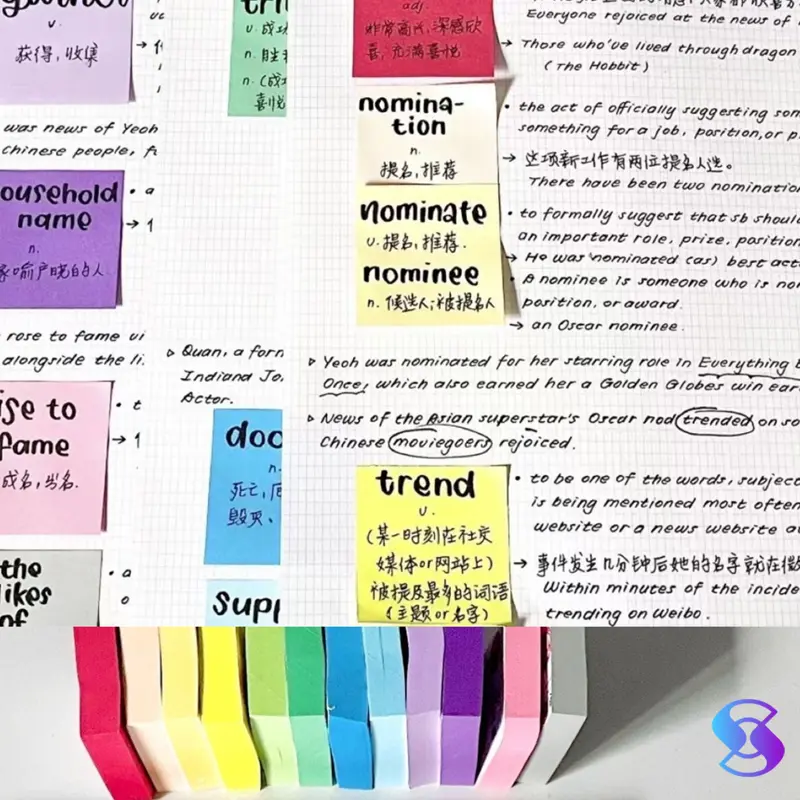 v.
获得, 收集
was news of Yeoh
Chinese people, f
ousehold
name
n.
喻户晓的人
rose to fame vi
alongside the li
ise to
fame
成名, 出名.
the
likes
of
n.
n.
▹ Quan, a forn
Indiana Jo
Actor.
doo
n.
死亡, 厄
毁灭、
supp
adj.
非常高兴, 深感欣
喜, 充满喜悦
Everyone rejoiced at the news of
→ Those who've lived through dragon
(The Hobbit)
nomina-
tion
n.
提名, 推荐
• the act of officially suggesting som
something for a job, position, or p
→ 这项新工作有两位提名人选。
There have been two nomination
nominate
v. 提名, 推荐.
• to formally suggest that sb shoul
an important role, prize, position
→ He was nominated (as) best act
nominee
n. 候选人; 被提名人
• A nominee is someone who is nom
position, or award.
→ an Oscar nominee.
▹ Yeoh was nominated for her starring role in Everything E
Once, which also earned her a Golden Globes win ear
▹ News of the Asian superstar's Oscar nod trended on so
Chinese moviegoers rejoiced.
trend
v.
(某一时刻在社交
媒体or网站上)
被提及最多的词语
(主题or名字)
• to be one of the words, subject
is being mentioned most often
website or a news website a
→ 事件发生几分钟后她的名字就在微
Within minutes of the incide
trending on Weibo.